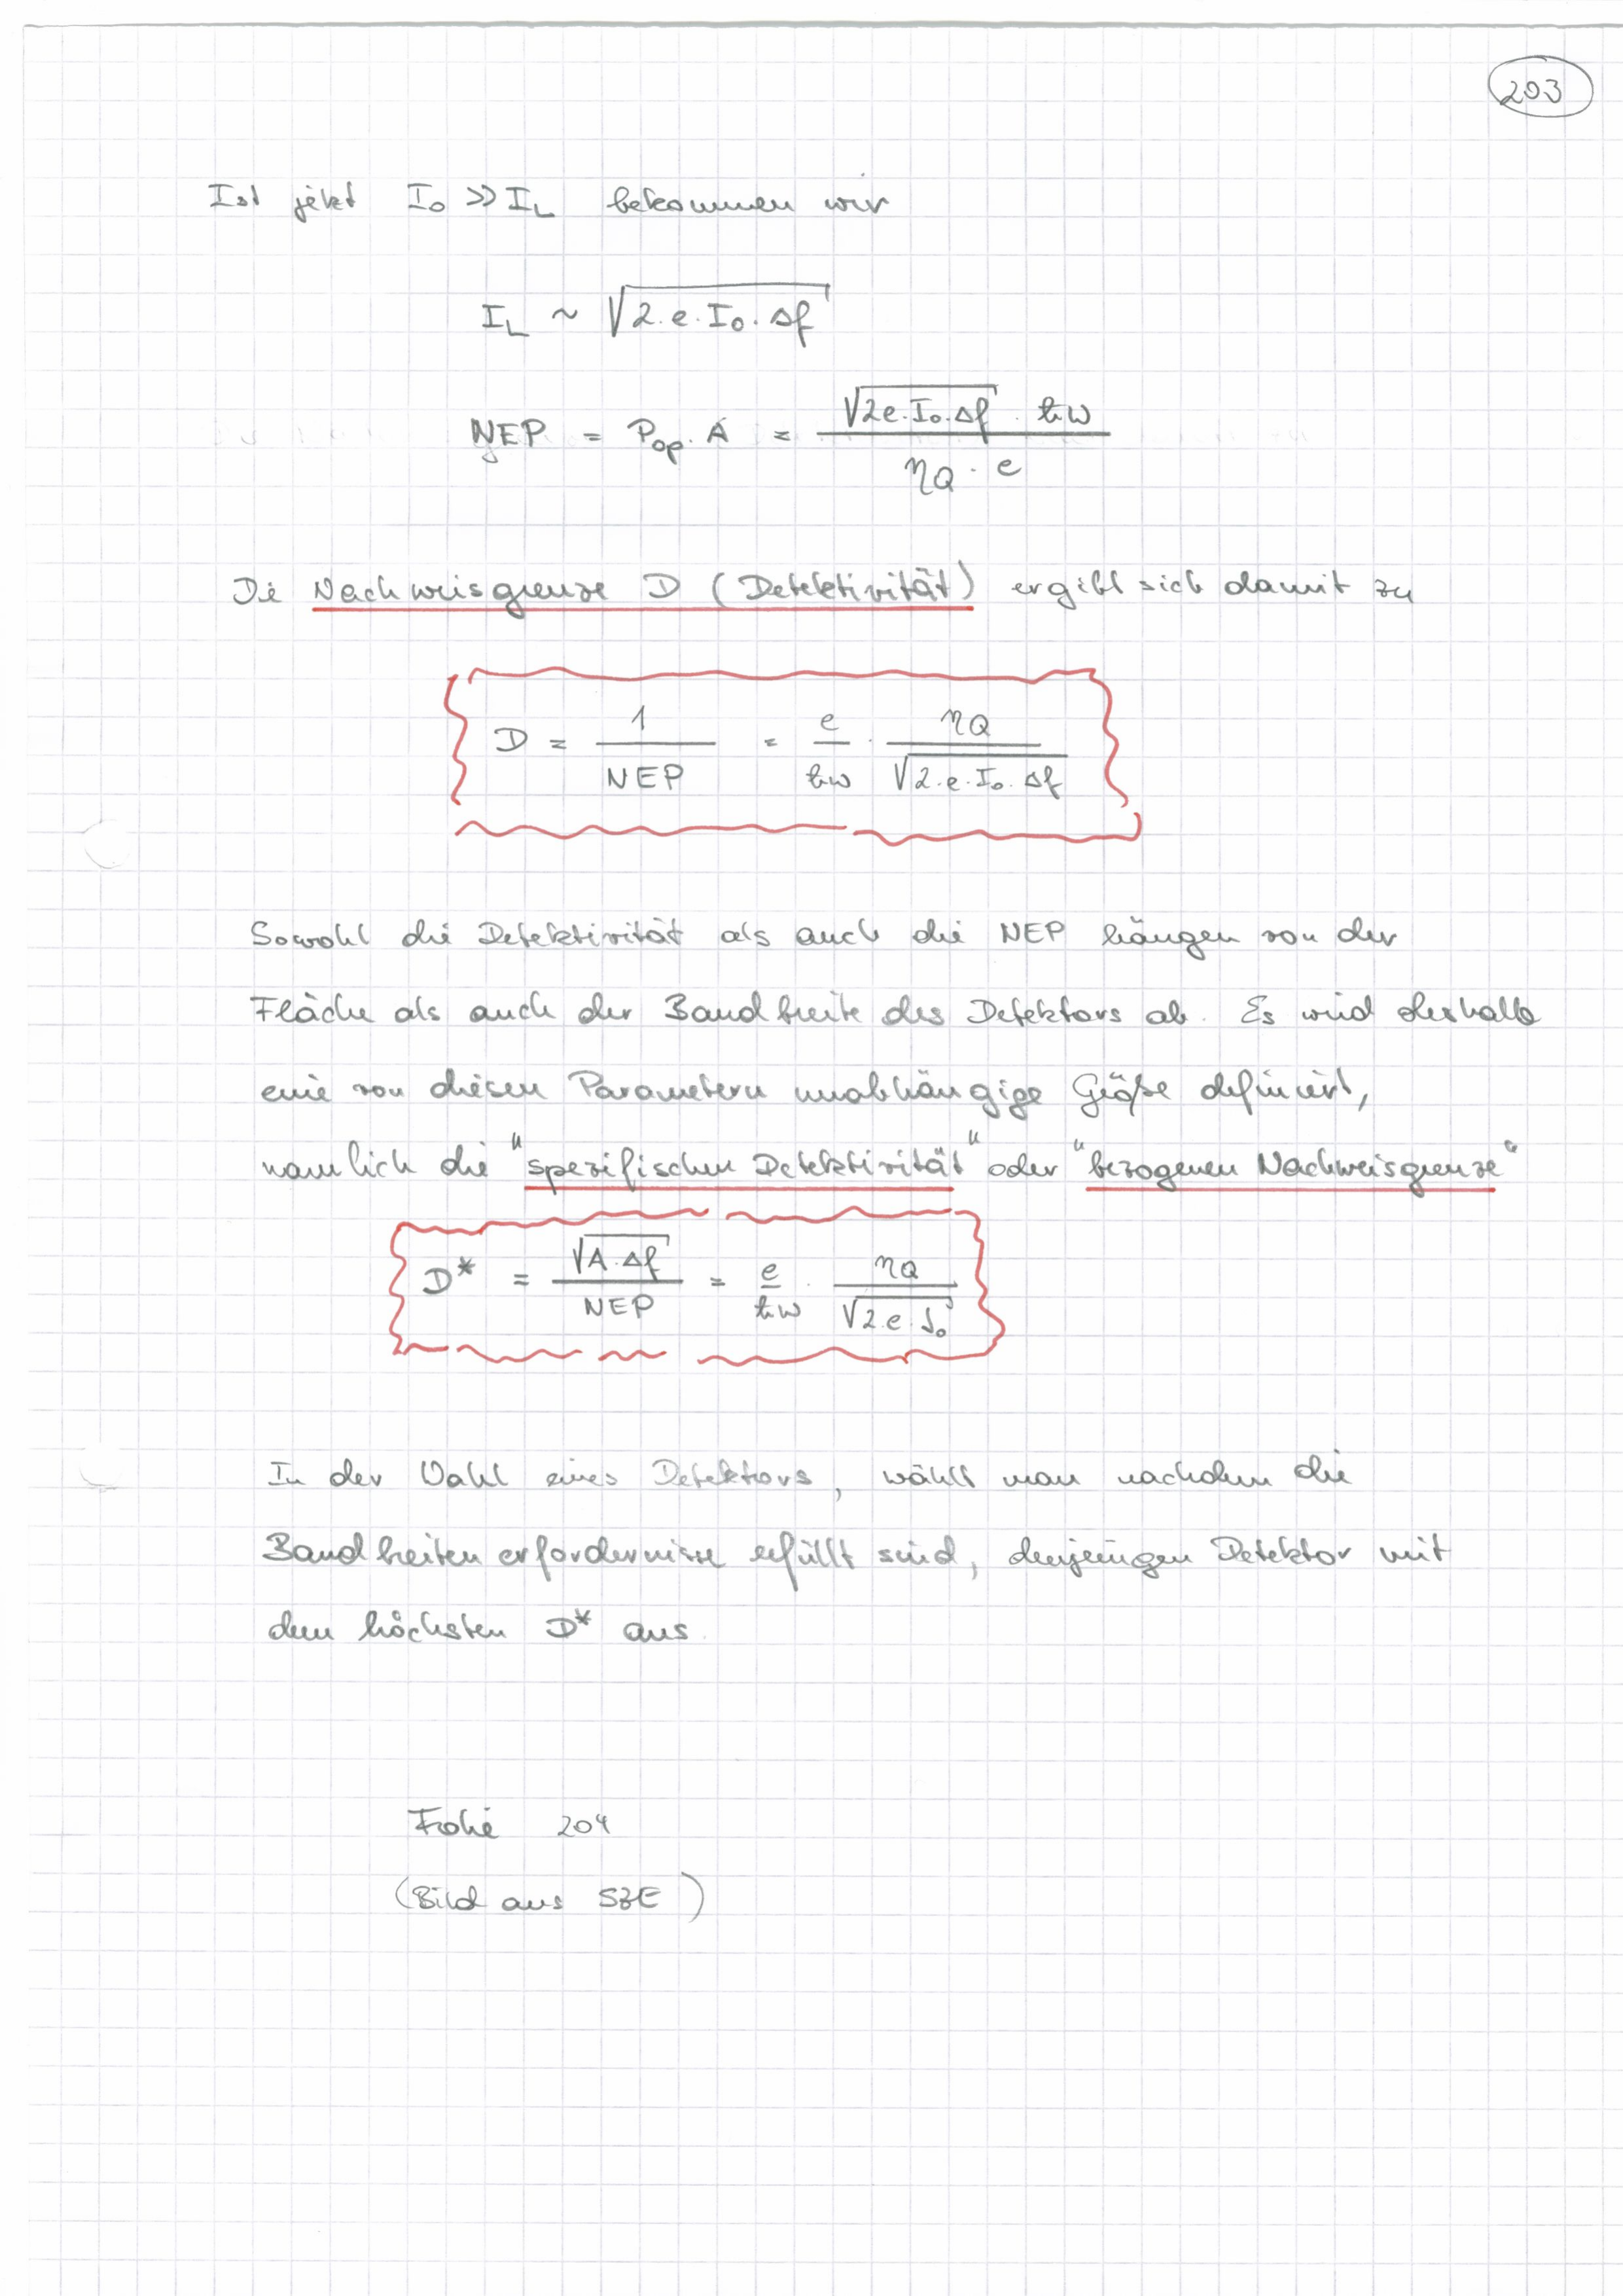 203
Ist jetzt I₀ >> I_L bekommen wir
I_L ~ √(2·e·I₀·Δf)
NEP = P_op · A = (√(2e·I₀·Δf) · ħω) / (η_Q · e)
Die Nachweisgrenze D (Detektivität) ergibt sich damit zu
D = 1 / NEP = e/ħω · η_Q / √(2·e·I₀·Δf)
Sowohl die Detektivität als auch die NEP hängen von der
Fläche als auch der Bandbreite des Detektors ab. Es wird deshalb
eine von diesen Parametern unabhängige Größe definiert,
namlich die "spezifischen Detektivität" oder "bezogenen Nachweisgrenze"
D* = √(A·Δf) / NEP = e/ħω · η_Q / √(2·e·J₀)
In der Wahl eines Detektors, wählt man nachdem die
Bandbreitenerfordernisse erfüllt sind, denjenigen Detektor mit
dem höchsten D* aus.
Folie 204
(Bild aus SZE)